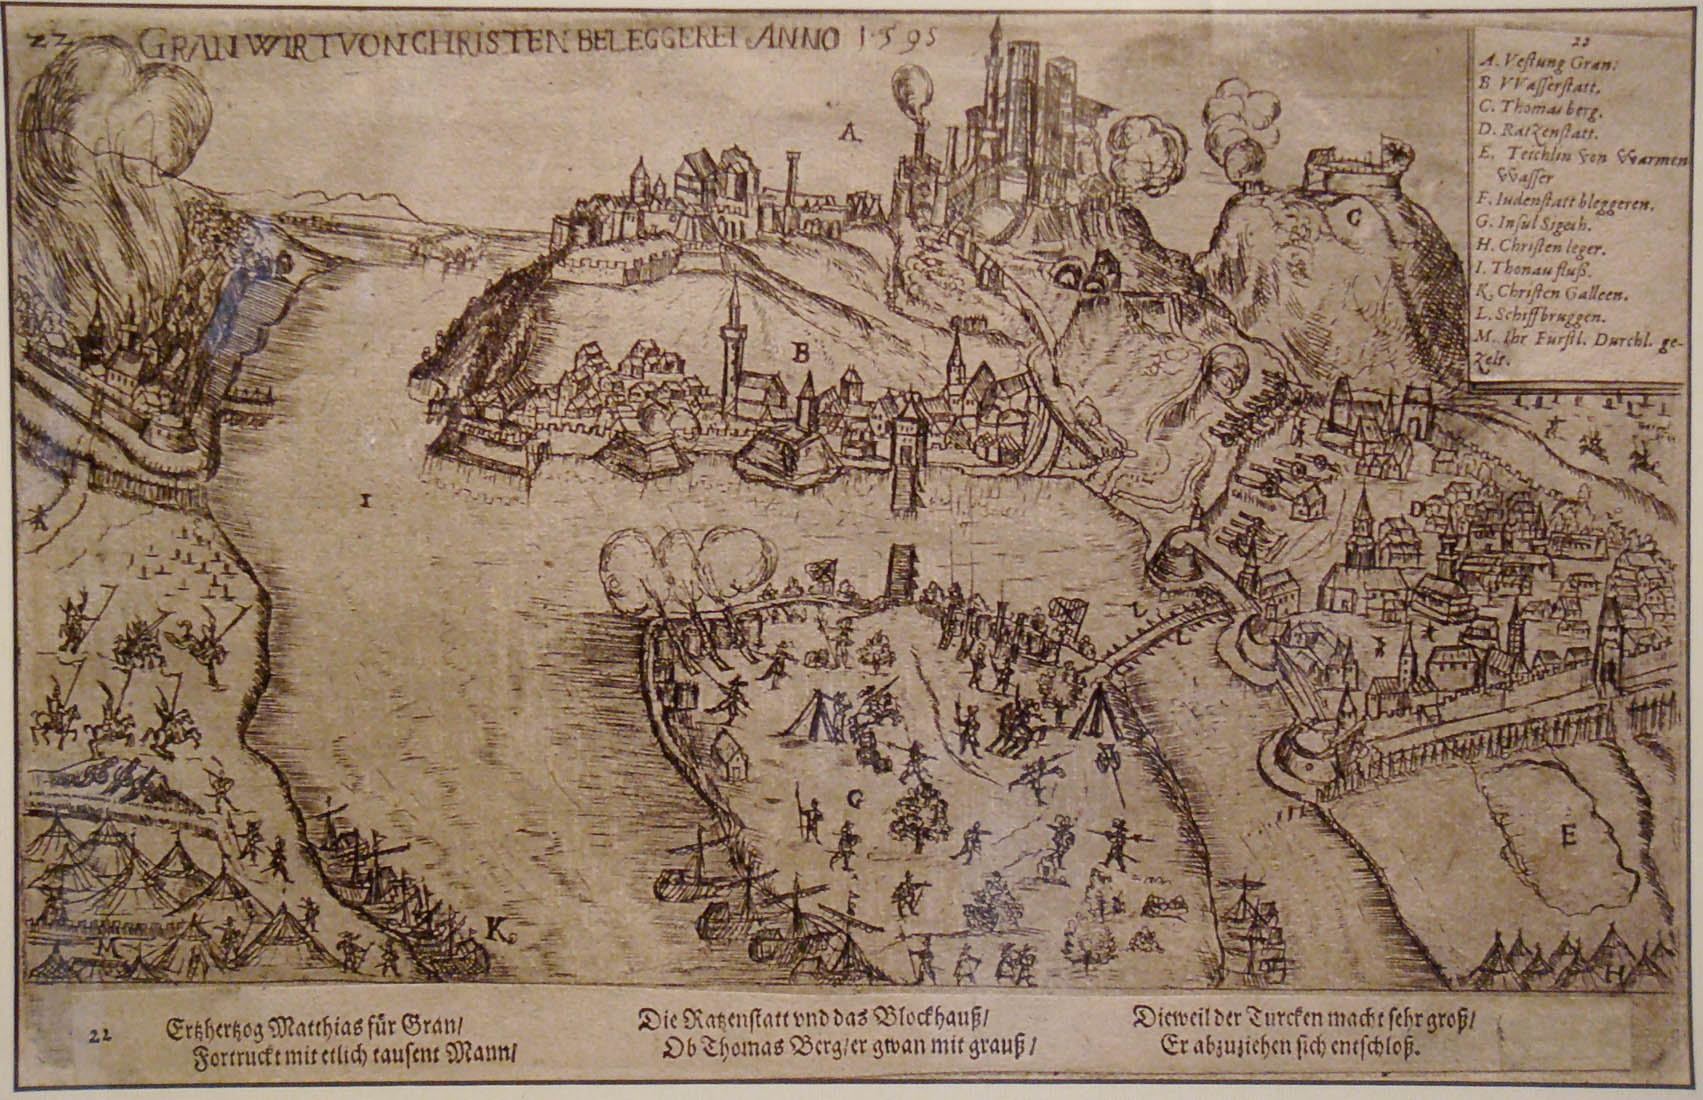 22
GRAN WIRT VON CHRISTEN BELEGGEREI ANNO 1595
22
A. Vestung Gran:
B VVasserstatt.
C. Thomas berg.
D. Ratzenstatt.
E. Teichlin von VVarmen
VVasser
F. Iudenstatt bleggeren.
G. Insul Sigeth.
H. Christen leger.
I. Thonau fluß.
K. Christen Galleen.
L. Schiffbruggen.
M. Ihr Furstl. Durchl. ge-
zelt.
A
C
B
I
D
L
L
G
E
K
M
H
22
Ertzhertzog Matthias für Gran/
Fortruckt mit etlich tausent Mann/
Die Ratzenstatt vnd das Blockhauß/
Ob Thomas Berg/er gwan mit grauß/
Dieweil der Turcken macht sehr groß/
Er abzuziehen sich entschloß.